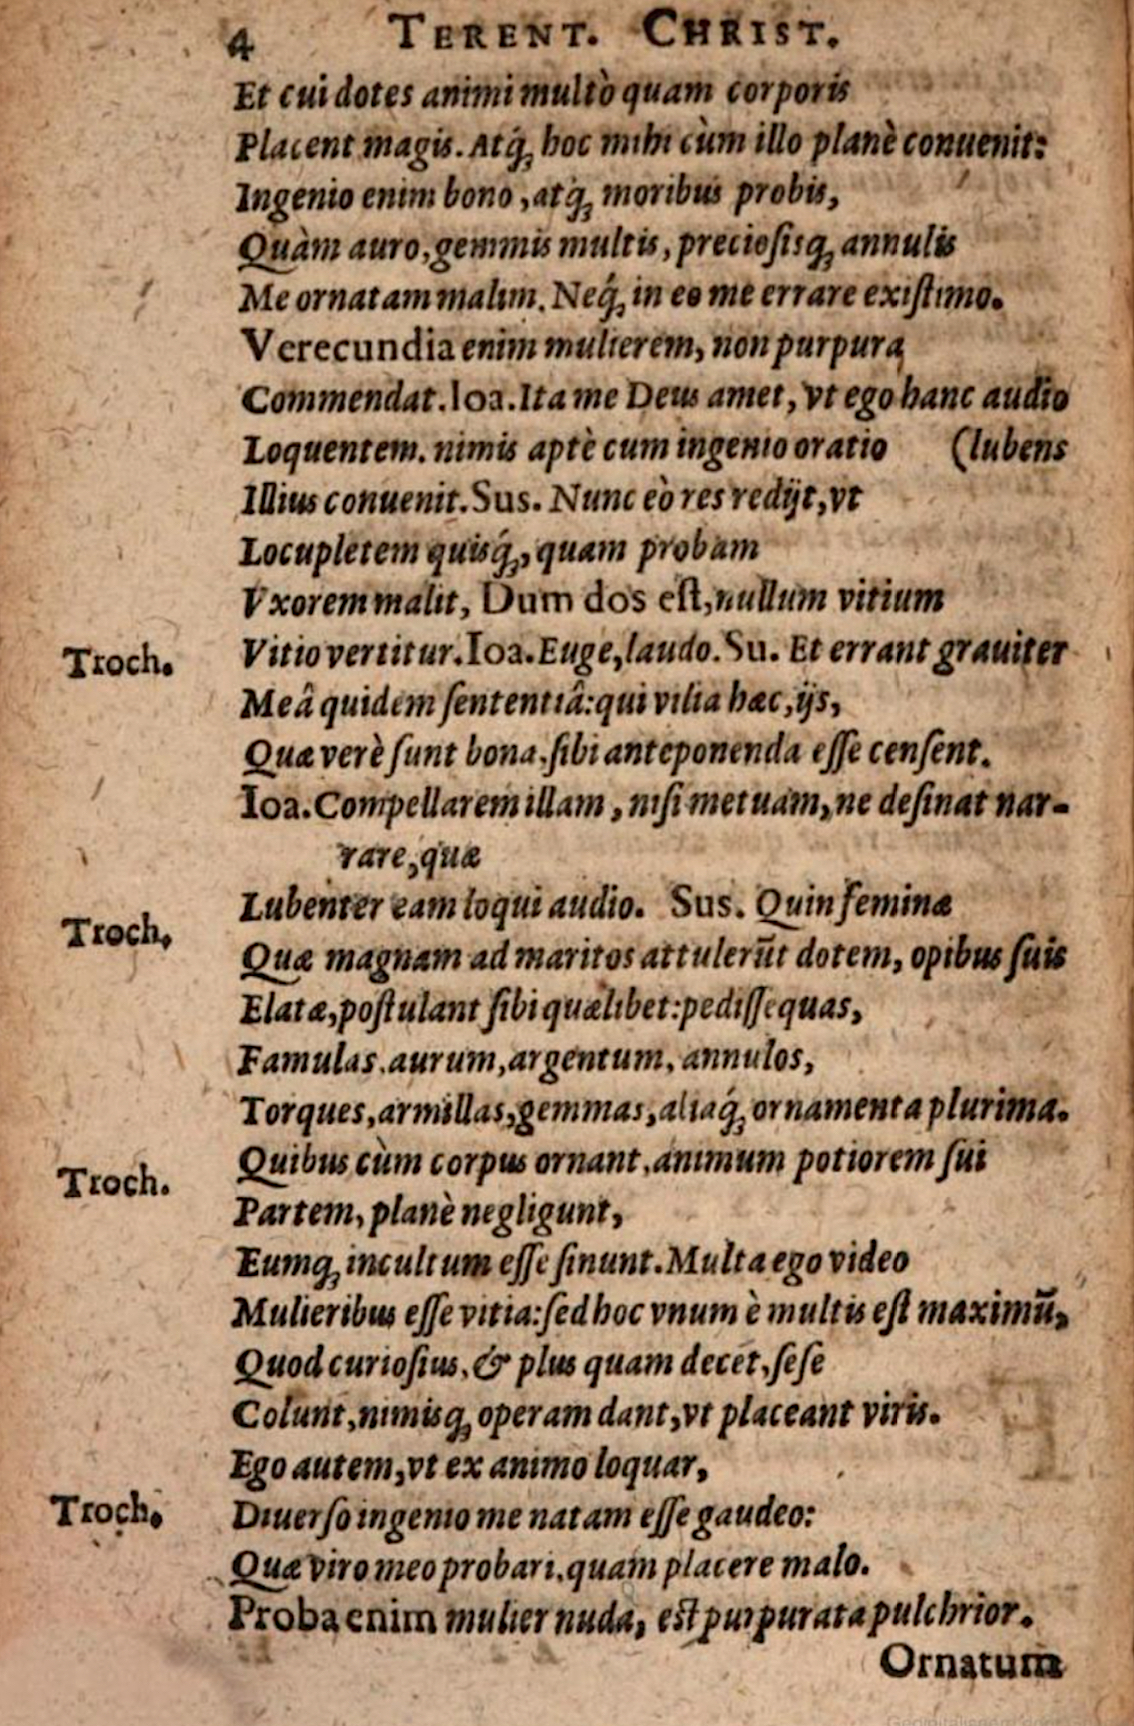 4 TERENT. CHRIST.
Et cui dotes animi multò quam corporis
Placent magis. Atq́ꝫ hoc mihi cùm illo planè conuenit:
Ingenio enim bono, atq́ꝫ moribus probis,
Quàm auro, gemmis multis, preciosisqꝫ annulis
Me ornatam malim. Neq́ꝫ in eo me errare existimo.
Verecundia enim mulierem, non purpura
Commendat. Ioa. Ita me Deus amet, vt ego hanc audio
Loquentem. nimis aptè cum ingenio oratio (lubens
Illius conuenit. Sus. Nunc eò res redijt, vt
Locupletem quisq́ꝫ, quam probam
Vxorem malit, Dum dos est, nullum vitium
Troch. Vitio vertitur. Ioa. Euge, laudo. Su. Et errant grauiter
Meâ quidem sententiâ: qui vilia hæc, ijs,
Quæ verè sunt bona, sibi anteponenda esse censent.
Ioa. Compellarem illam, nisi metuam, ne desinat nar-
rare, quæ
Lubenter eam loqui audio. Sus. Quin feminæ
Troch, Quæ magnam ad maritos attulerūt dotem, opibus suis
Elatæ, postulant sibi quælibet: pedissequas,
Famulas, aurum, argentum, annulos,
Torques, armillas, gemmas, aliaq́ꝫ ornamenta plurima.
Troch. Quibus cùm corpus ornant, animum potiorem sui
Partem, planè negligunt,
Eumqꝫ incultum esse sinunt. Multa ego video
Mulieribus esse vitia: sed hoc vnum è multis est maximū,
Quod curiosius, & plus quam decet, sese
Colunt, nimisqꝫ operam dant, vt placeant viris.
Ego autem, vt ex animo loquar,
Troch. Diuerso ingenio me natam esse gaudeo:
Quæ viro meo probari, quam placere malo.
Proba enim mulier nuda, est purpurata pulchrior.
Ornatum